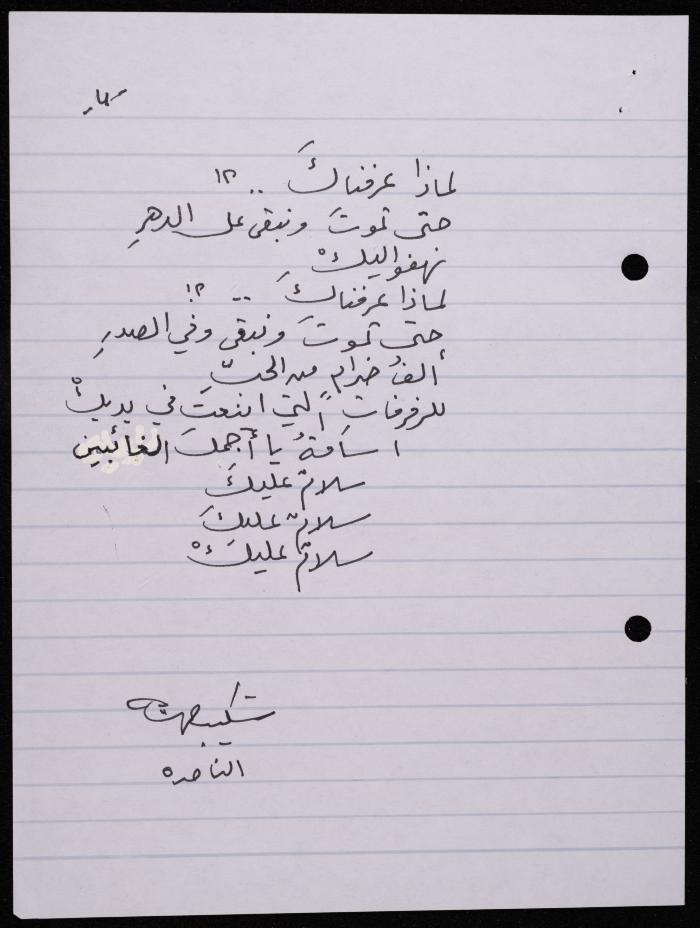 -٤-
لماذا عرفناكَ .. ؟!
حتى تموتَ ونبقى على الدهرِ
نهفو اليكْ
لماذا عرفناكَ .. ؟!
حتى تموتَ ونبقى وفي الصدرِ
ألفُ ضرامٍ من الحبِّ
للزفرفات التي اينعتْ في يديكْ
اسامةُ يا أجملَ الغائبين
سلامٌ عليكَ
سلامٌ عليكَ
سلامٌ عليكْ
شكيب جهشان
الناصره